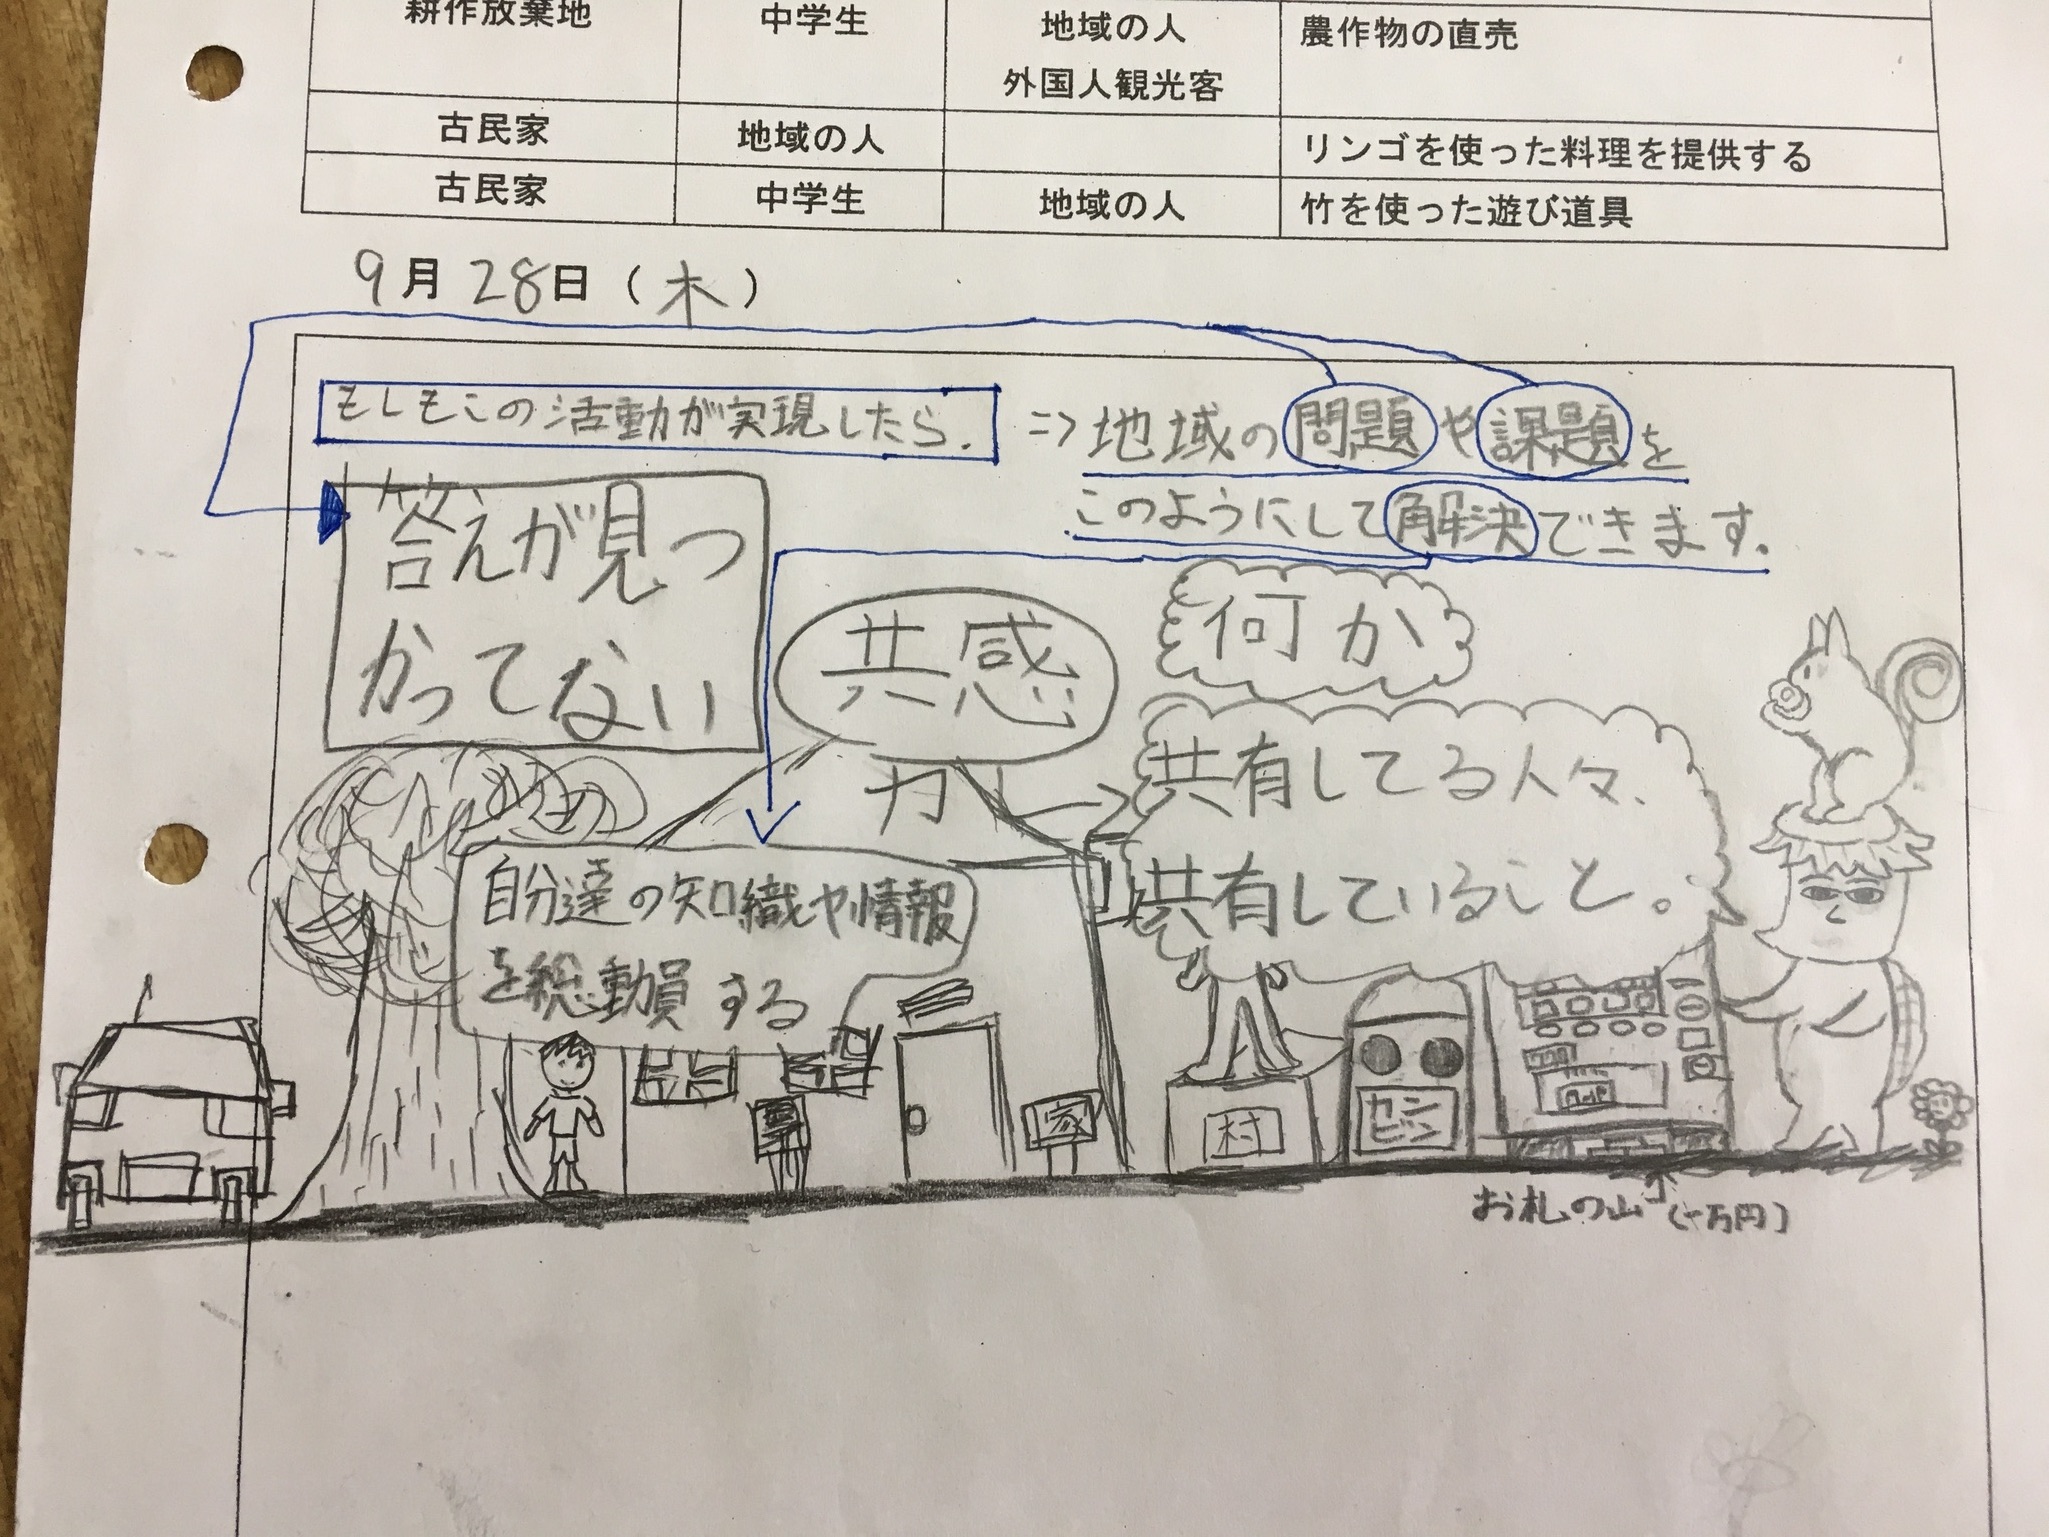 耕作放棄地 中学生 地域の人 農作物の直売
外国人観光客
古民家 地域の人 リンゴを使った料理を提供する
古民家 中学生 地域の人 竹を使った遊び道具
9月28日(木)
もしもこの活動が実現したら. ⇒地域の問題や課題を
このようにして解決できます。
答えが見つ
かってない
共感
力
何か
共有してる人々、
共有していること。
自分達の知識や情報
を総動員する
家
村
カン
ビン
お札の山(一万円)